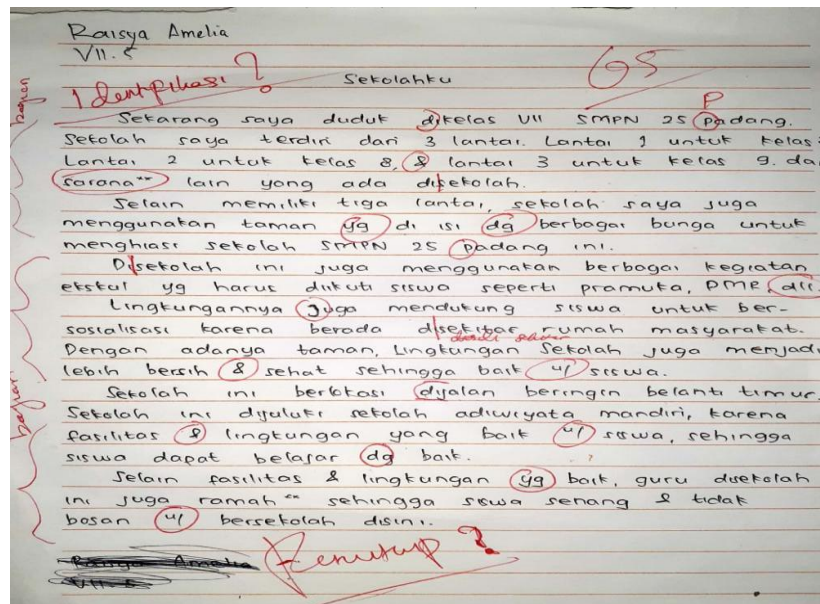 Raisya Amelia
VII.5
65
Identifikasi ?
Sekolahku
P
bagian
Sekarang saya duduk dikelas VII SMPN 25 padang.
Sekolah saya terdiri dari 3 lantai. Lantai 1 untuk kelas
Lantai 2 untuk kelas 8, & lantai 3 untuk kelas 9. da
sarana" lain yang ada disekolah.
Selain memiliki tiga lantai, sekolah saya juga
menggunakan taman yg di isi dg berbagai bunga untuk
menghiasi sekolah SMPN 25 padang ini.
Disekolah ini juga menggunakan berbagai kegiatan
ekskul yg harus diikuti siswa seperti pramuka, PMR, dll.
Lingkungannya juga mendukung siswa untuk ber-
sosialisasi karena berada disekitar rumah masyarakat.
Dengan adanya taman, Lingkungan Sekolah juga menjadi
lebih bersih & sehat sehingga baik u/ siswa.
bagian
Sekolah ini berlokasi dijalan beringin belanti timur.
Sekolah ini dijuluki sekolah adiwiyata mandiri, karena
fasilitas & lingkungan yang baik u/ siswa, sehingga
siswa dapat belajar dg baik.
Selain fasilitas & lingkungan yg baik, guru disekolah
ini juga ramah" sehingga siswa senang & tidak
bosan u/ bersekolah disini.
Penutup ?